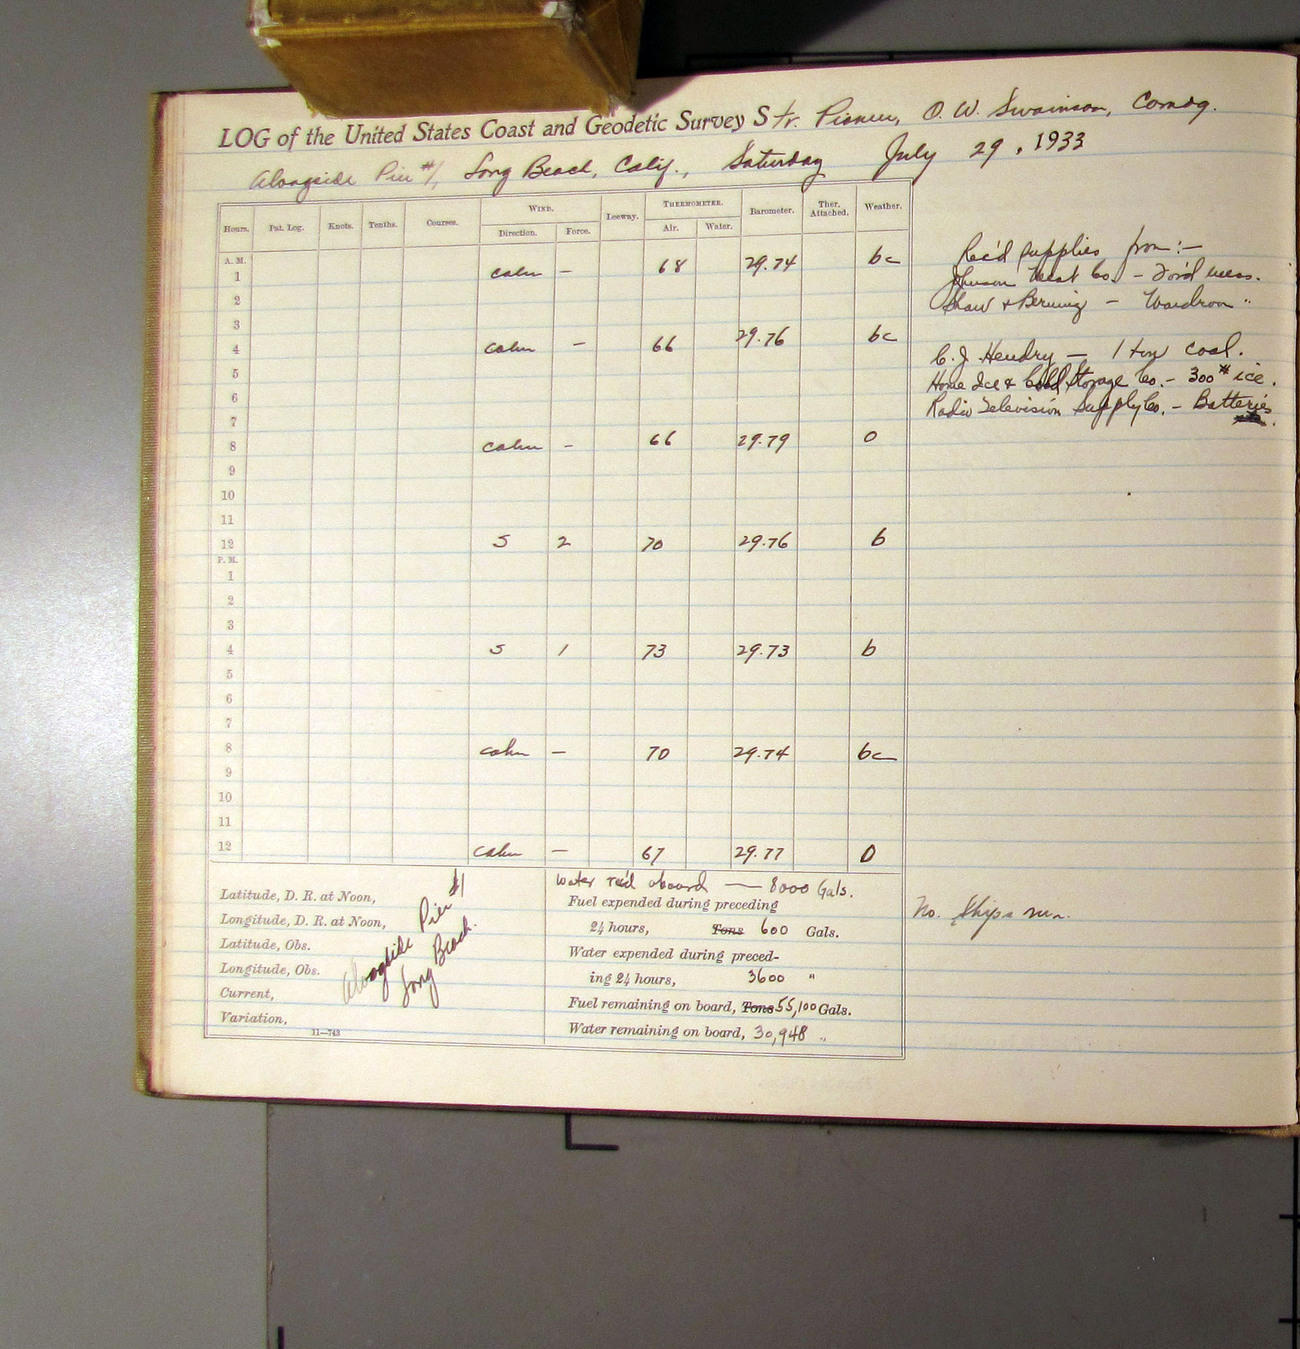 LOG of the United States Coast and Geodetic Survey Str. Pioneer, O. W. Swainson, Comdg.
Alongside Pier #1, Long Beach, Calif., Saturday July 29, 1933
Hours. Pat. Log. Knots. Tenths. Courses. WIND. Direction. Force. Leeway. THERMOMETER. Air. Water. Barometer. Ther. Attached. Weather.
A. M.
1 calm — 68 29.74 bc
2
3
4 calm — 66 29.76 bc
5
6
7
8 calm - 66 29.79 0
9
10
11
12 S 2 70 29.76 b
P. M.
1
2
3
4 S 1 73 29.73 b
5
6
7
8 calm — 70 29.74 bc
9
10
11
12 calm — 67 29.77 0
Rec'd supplies from:—
Johnson Meat Co. — For'd mess.
Shaw & — Wardroom "
C. J. Hendry — 1 ton coal.
Home Ice & Cold Storage Co. — 300# ice.
Radio Television Supply Co. — Batteries.
Latitude, D. R. at Noon,
Longitude, D. R. at Noon,
Latitude, Obs.
Longitude, Obs.
Current,
Variation,
Alongside Pier #1
Long Beach.
11—743
Water rec'd aboard — 8000 Gals.
Fuel expended during preceding
24 hours, Tons 600 Gals.
Water expended during preced-
ing 24 hours, 3600 "
Fuel remaining on board, Tons 55,100 Gals.
Water remaining on board, 30,948 "
No. Ships run.